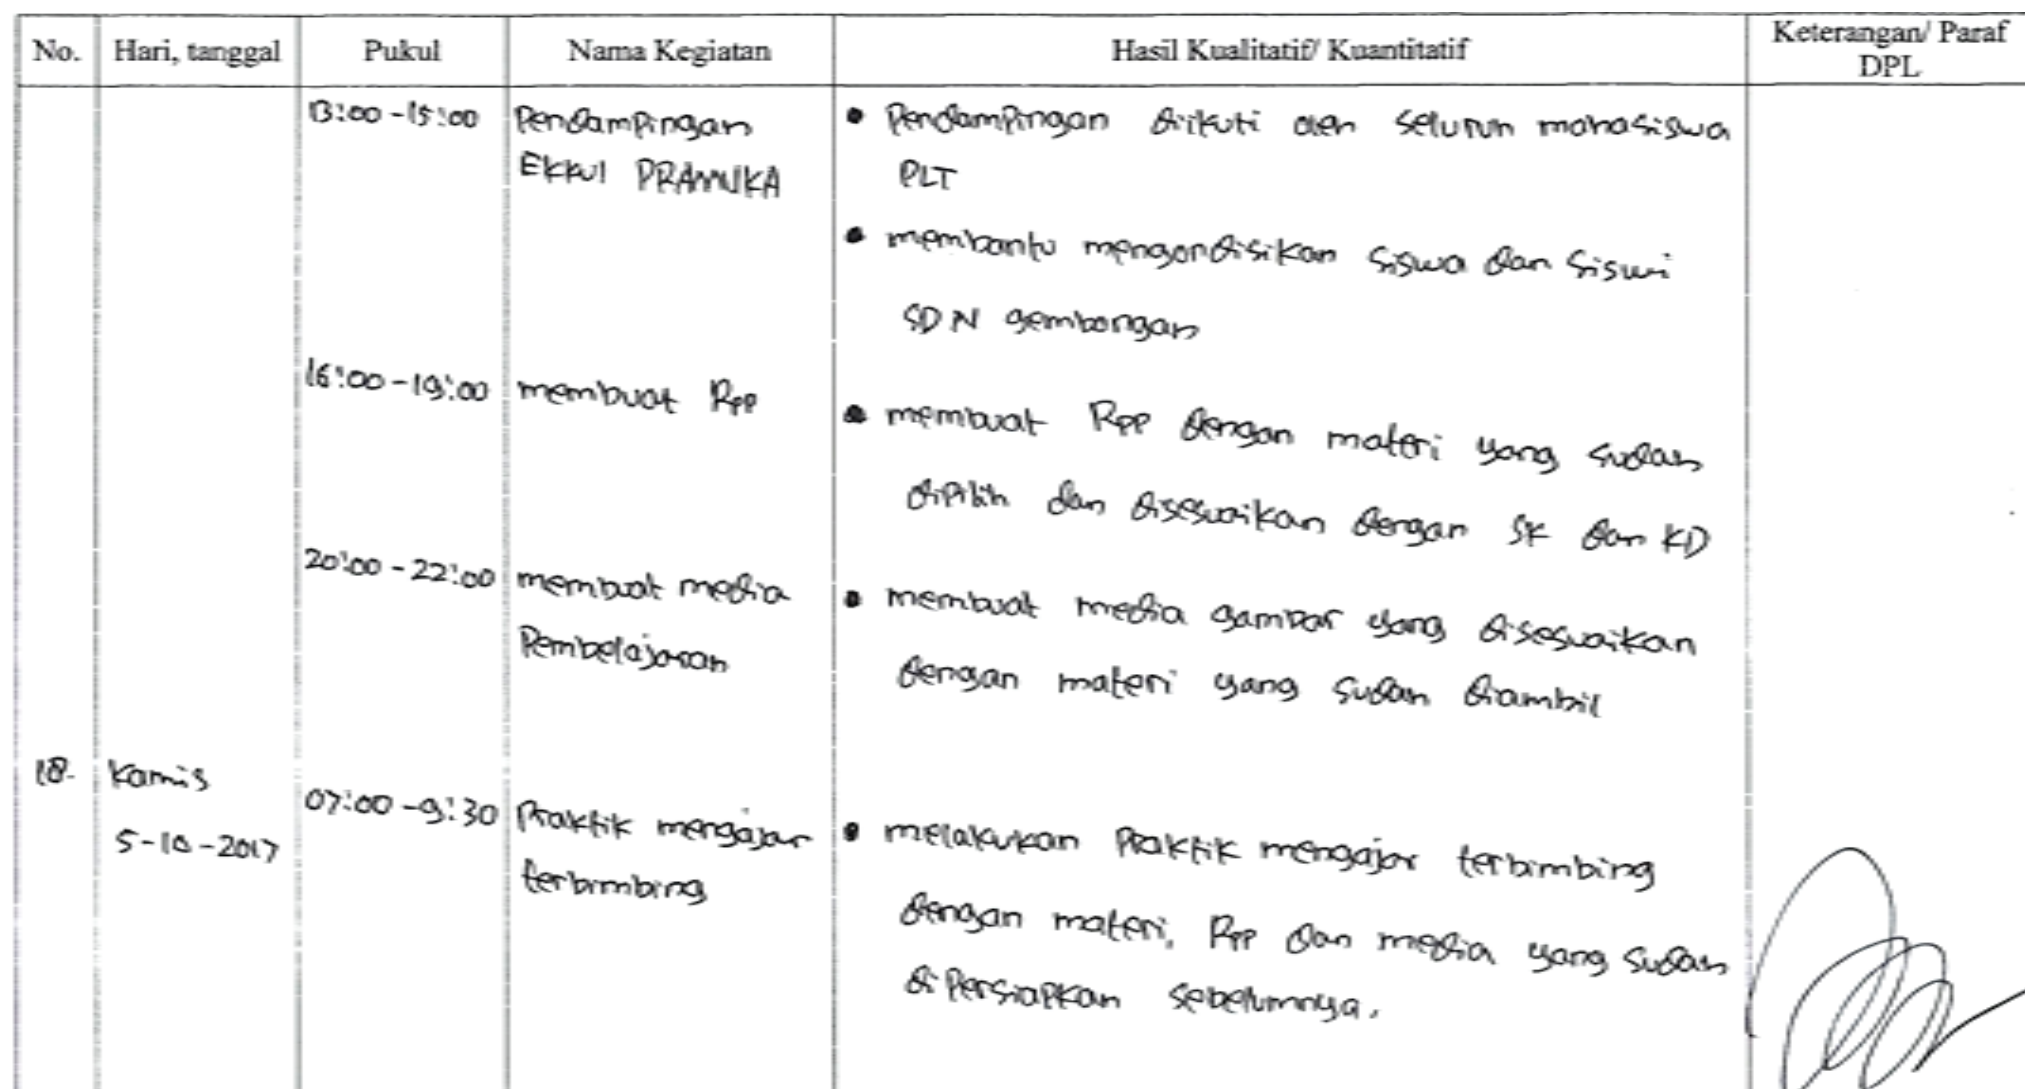 No. Hari, tanggal Pukul Nama Kegiatan Hasil Kualitatif/ Kuantitatif Keterangan/ Paraf DPL
13:00 - 15:00 Pendampingan • Pendampingan diikuti oleh seluruh mahasiswa
EKKUl PRAMUKA PLT
• membantu mengondisikan siswa dan siswi
SDN gembongan
16:00 - 19:00 membuat RPP
• membuat RPP dengan materi yang sudah
dipilih dan disesuaikan dengan SK dan KD
20:00 - 22:00 membuat media • membuat media gambar yang disesuaikan
Pembelajaran dengan materi yang sudah diambil
18. Kamis
5-10-2017 07:00 - 9:30 Praktik mengajar • melakukan Praktik mengajar terbimbing
terbimbing dengan materi, RPP dan media yang sudah
diPersiapkan sebelumnya.